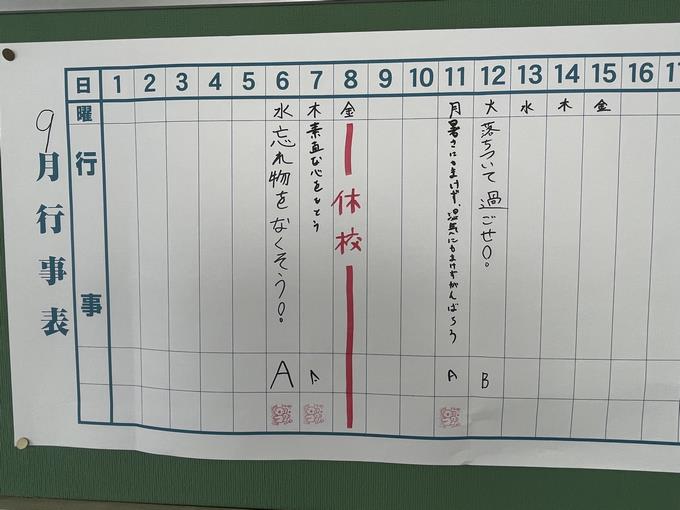 9月行事表
日 1 2 3 4 5 6 7 8 9 10 11 12 13 14 15 16
曜 水 木 金 月 火 水 木 金
行事
忘れ物をなくそう!
素直な心をもとう
休校
暑さにもまけず、湿気にもまけずがんばろう
落ちついて過ごせ!
A A A B